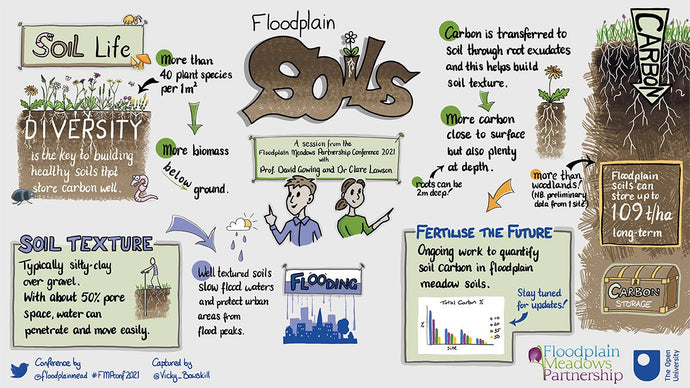 SOIL Life
More than
40 plant species
per 1m²
DIVERSITY
is the key to building
healthy soils that
store carbon well.
More biomass
below
ground.
Floodplain
SOILS
A session from the
Floodplain Meadows Partnership Conference 2021
with
Prof. David Gowing and Dr Clare Lawson
Carbon is transferred to
soil through root exudates
and this helps build
soil texture.
More carbon
close to surface
but also plenty
at depth.
roots can be
2m deep!
more than
woodlands!
(NB. preliminary
data from 1 site)
CARBON
Floodplain
soils can
store up to
109 t/ha
long-term
CARBON
STORAGE
SOIL TEXTURE
Typically silty-clay
over gravel.
With about 50% pore
space, water can
penetrate and move easily.
Well textured soils
slow flood waters
and protect urban
areas from
flood peaks.
FLOODING
FERTILISE THE FUTURE
Ongoing work to quantify
soil carbon in floodplain
meadow soils.
Total Carbon %
SITE
Stay tuned
for updates!
Conference by
@floodplainmead #FMPconf2021
Captured by
@Vicky_Bowskill
Floodplain
Meadows
Partnership
The Open
University